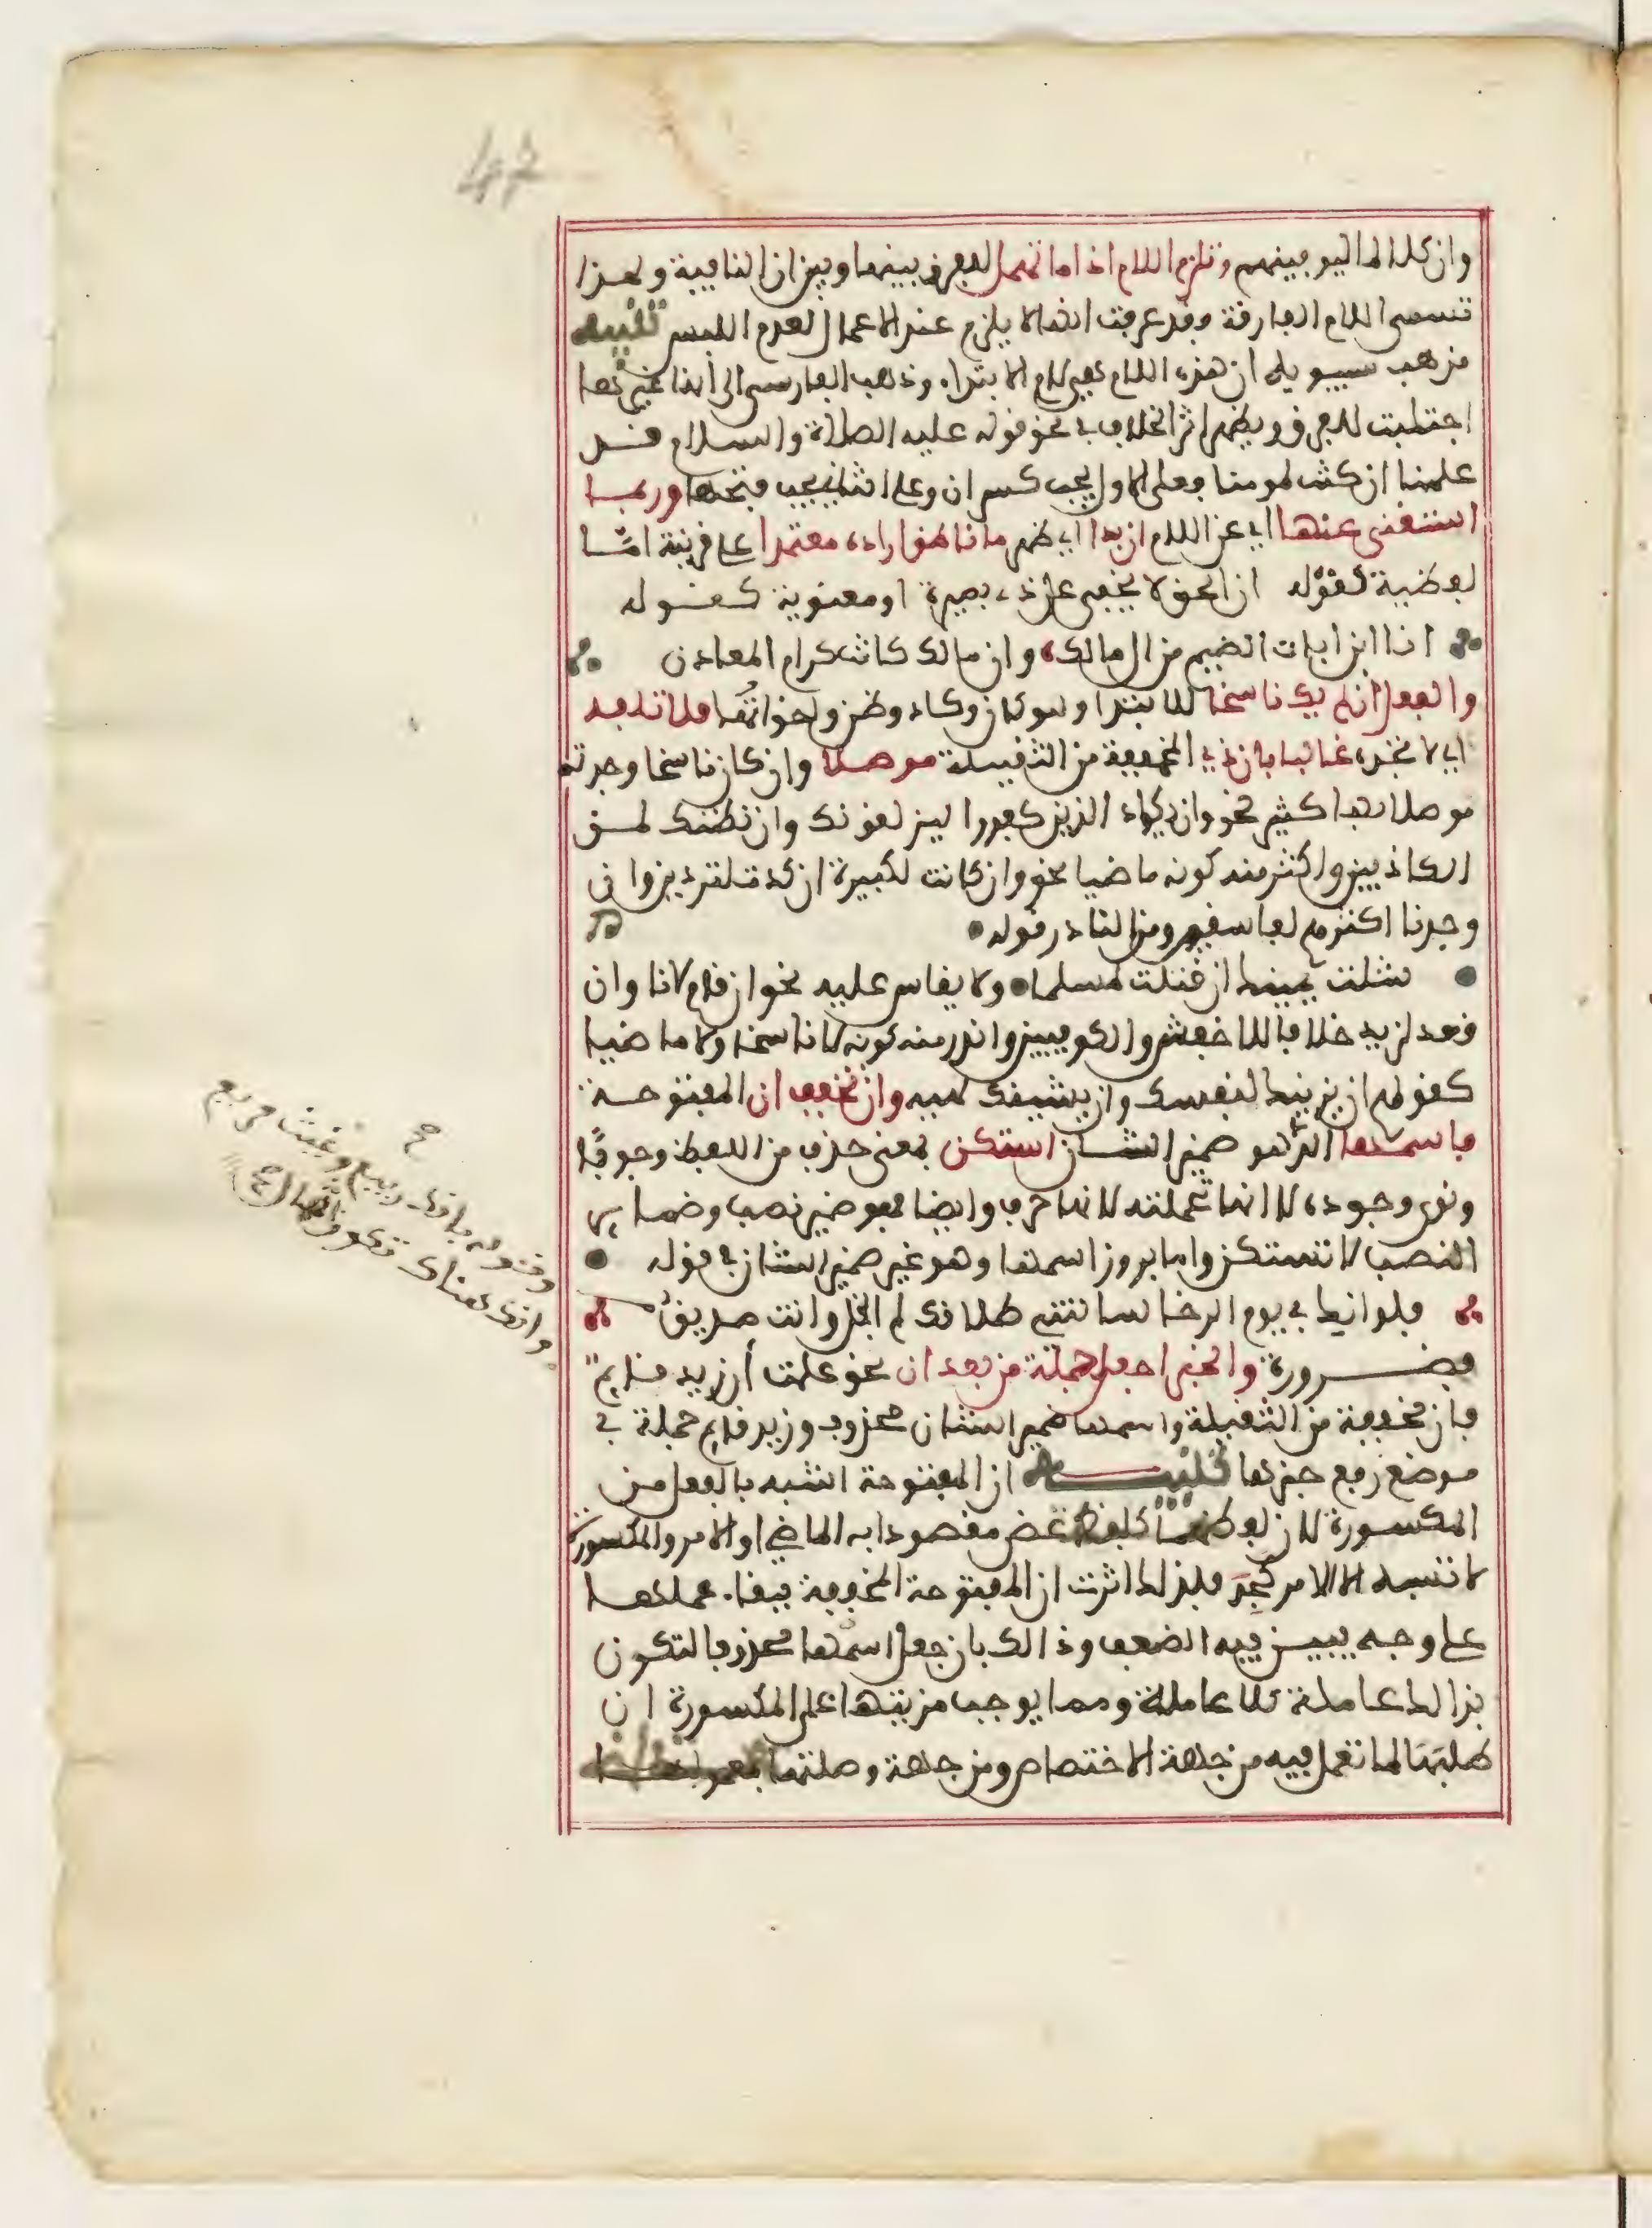 47
وان كلا لما ليوفينهم وتلزم اللام اذا ما تهمل للفرق بينها وبين ان النافية ولهذا
تسمى اللام الفارقة وقد عرفت انها لا يلزم عند الاعمال لعدم اللبس تنبيه
مذهب سيبويه ان هذه اللام هي لام الابتداء وذهب الفارسي الى أنها غيرها
اجتلبت للفرق ويظهر اثر الخلاف في نحو قوله عليه الصلاة والسلام قد
علمنا ان كنت لمومنا فعلى الاول يجب كسر ان وعلى الثاني يجب فتحها وربما
استغنى عنها اي عن اللام ان بدا اي ظهر ما ناطق اراده معتمدا على قرينة اما
لفظية كقوله ان الحق لا يخفى على ذي بصيرة او معنوية كقوله
انا ابن اباة الضيم من ال مالك، وان مالك كانت كرام المعادن
والفعل ان لم يك ناسخا للابتدا وهو كان وكاد وظن واخواتها فلا تلفيه
اي لا تجده غالبا بان ذي المخففة من الثقيلة موصلا وان كان ناسخا وجدته
موصلا بها كثير نحو وان يكاد الذين كفروا ليزلقونك وان نظنك لمن
الكاذبين واكثر منه كونه ماضيا نحو وان كانت لكبيرة ان كدت لتردين وان
وجدنا اكثرهم لفاسقين ومن النادر قوله
شلت يمينك ان قتلت لمسلما ولا يقاس عليه نحو ان قام لانا وان
قعد لزيد خلافا للاخفش والكوفيين واندر منه كونه لا ناسخا ولا ماضيا
كقولهم ان يزينك لنفسك وان يشينك لهيه وان تخفف ان المفتوحة
فاسمها الذي هو ضمير الشان استكن بمعنى حذف من اللفظ وجوبا
ونوي وجوده لا انها تحملته لانها حرف وايضا فهو ضمير نصب وضماير
النصب لا تستكن واما بروز اسمها وهو غير ضمير الشان في قوله
فلو انك في يوم الرخا سالتني طلاقك لم ابخل وانت صديق
فضرورة والخبر اجعل جملة من بعد ان نحو علمت أن زيد قايم
فان مخففة من الثقيلة واسمها ضمير الشان محذوف وزيد قايم جملة في
موضع رفع خبرها تنبيه ان المفتوحة اشبه بالفعل من
المكسورة لان لفظها كلفظ عض مقصودا به الماضي او الامر والمكسورة
لا تشبه الا الامر كجد فلذلك اثرت ان المفتوحة المخففة ببقاء عملها
على وجه يبين فيه الضعف وذالك بان جعل اسمها محذوفا لتكون
بذالك عاملة كلا عاملة ومما يوجب مزيتها على المكسورة ان
طلبتها لما تعمل فيه من جهة الاختصاص ومن جهة وصلتها بمعمولها
صح
وقوله بانك ربيع وغيث مريع
وانك هناك تكون الثمال صح